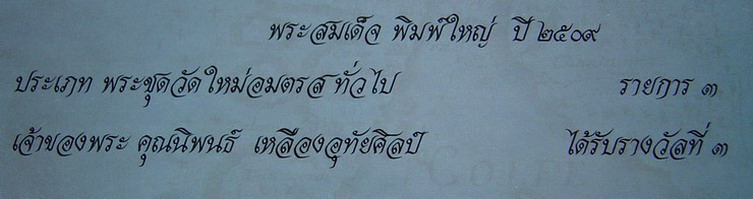 พระสมเด็จ พิมพ์ใหญ่ ปี ๒๕๐๙
ประเภท พระชุดวัดใหม่อมตรส ทั่วไป รายการ ๓
เจ้าของพระ คุณนิพนธ์ เหลืองอุทัยศิลป์ ได้รับรางวัลที่ ๓